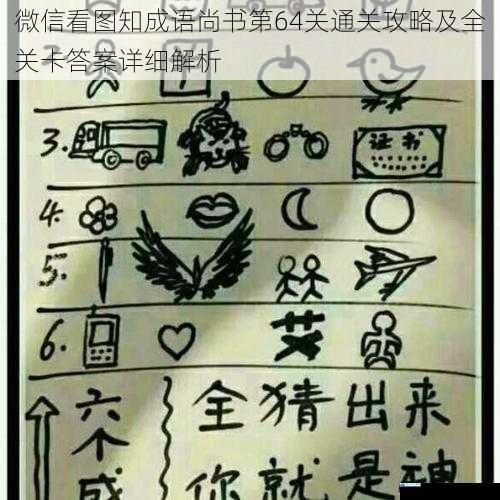 微信看图知成语尚书第64关通关攻略及全
关卡答案详细解析
3. 证书
4.
5.
6. 艾
六个成
全猜出来
你就是神